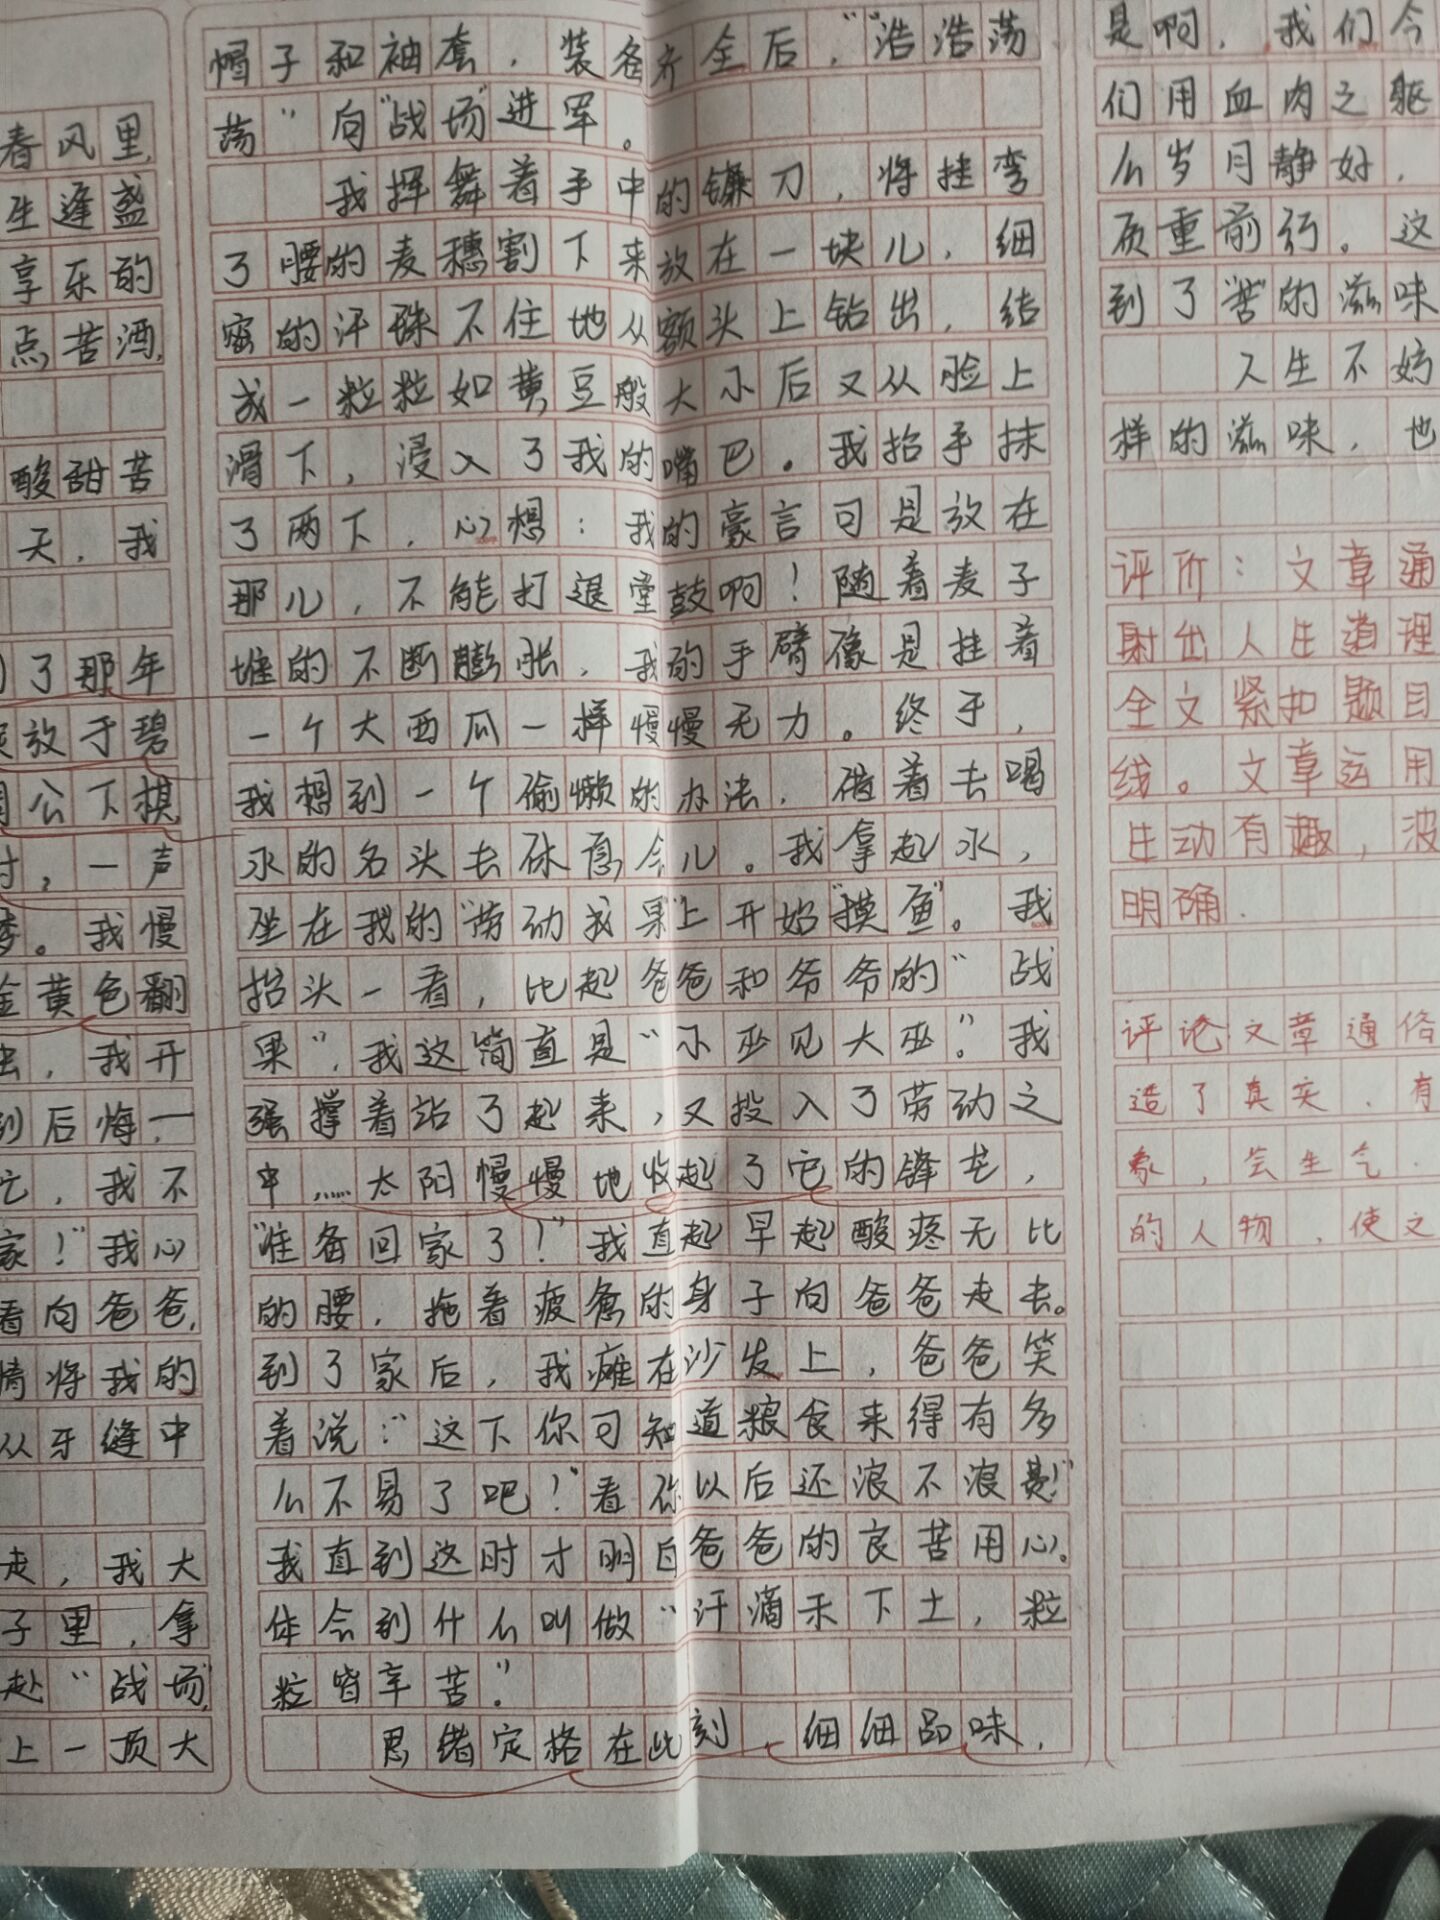 春风里,
生逢盛
享乐的
点苦酒,
酸甜苦
天,我
了那年
放于碧
公下棋
,一声
。我慢
金黄色翻
,我开
到后悔,一
忙,我不
家!”我心
看向爸爸,
情将我的
从牙缝中
走,我大
子里,拿
赴“战场”,
上一顶大
帽子和袖套,装备齐全后,“浩浩荡
荡”向“战场”进军。
我挥舞着手中的镰刀,将挂弯
了腰的麦穗割下来放在一块儿,细
密的汗珠不住地从额头上钻出,结
成一粒粒如黄豆般大小后又从脸上
滑下,浸入了我的嘴巴。我抬手抹
了两下,心想:我的豪言可是放在
那儿,不能打退堂鼓啊!随着麦子
堆的不断膨胀,我的手臂像是挂着
一个大西瓜一样慢慢无力。终于,
我想到一个偷懒的办法,借着去喝
水的名头去休息会儿。我拿起水,
坐在我的“劳动成果”上开始“摸鱼”。我
抬头一看,比起爸爸和爷爷的“战
果”,我这简直是“小巫见大巫”。我
强撑着站了起来,又投入了劳动之
中……太阳慢慢地收起了它的锋芒,
“准备回家了!”我直起早起酸疼无比
的腰,拖着疲惫的身子向爸爸走去。
到了家后,我瘫在沙发上,爸爸笑
着说:“这下你可知道粮食来得有多
么不易了吧!”看你以后还浪不浪费!”
我直到这时才明白爸爸的良苦用心。
体会到什么叫做“汗滴禾下土,粒
粒皆辛苦”。
思绪定格在此刻,细细品味,
是啊,我们今
们用血肉之躯
么岁月静好,
质重前行。这
到了“苦”的滋味
人生不妨
样的滋味,也
评价:文章通
射出人生道理
全文紧扣题目
线。文章运用
生动有趣,波
明确.
评论文章通俗
造了真实.有
象,会生气.
的人物,使文